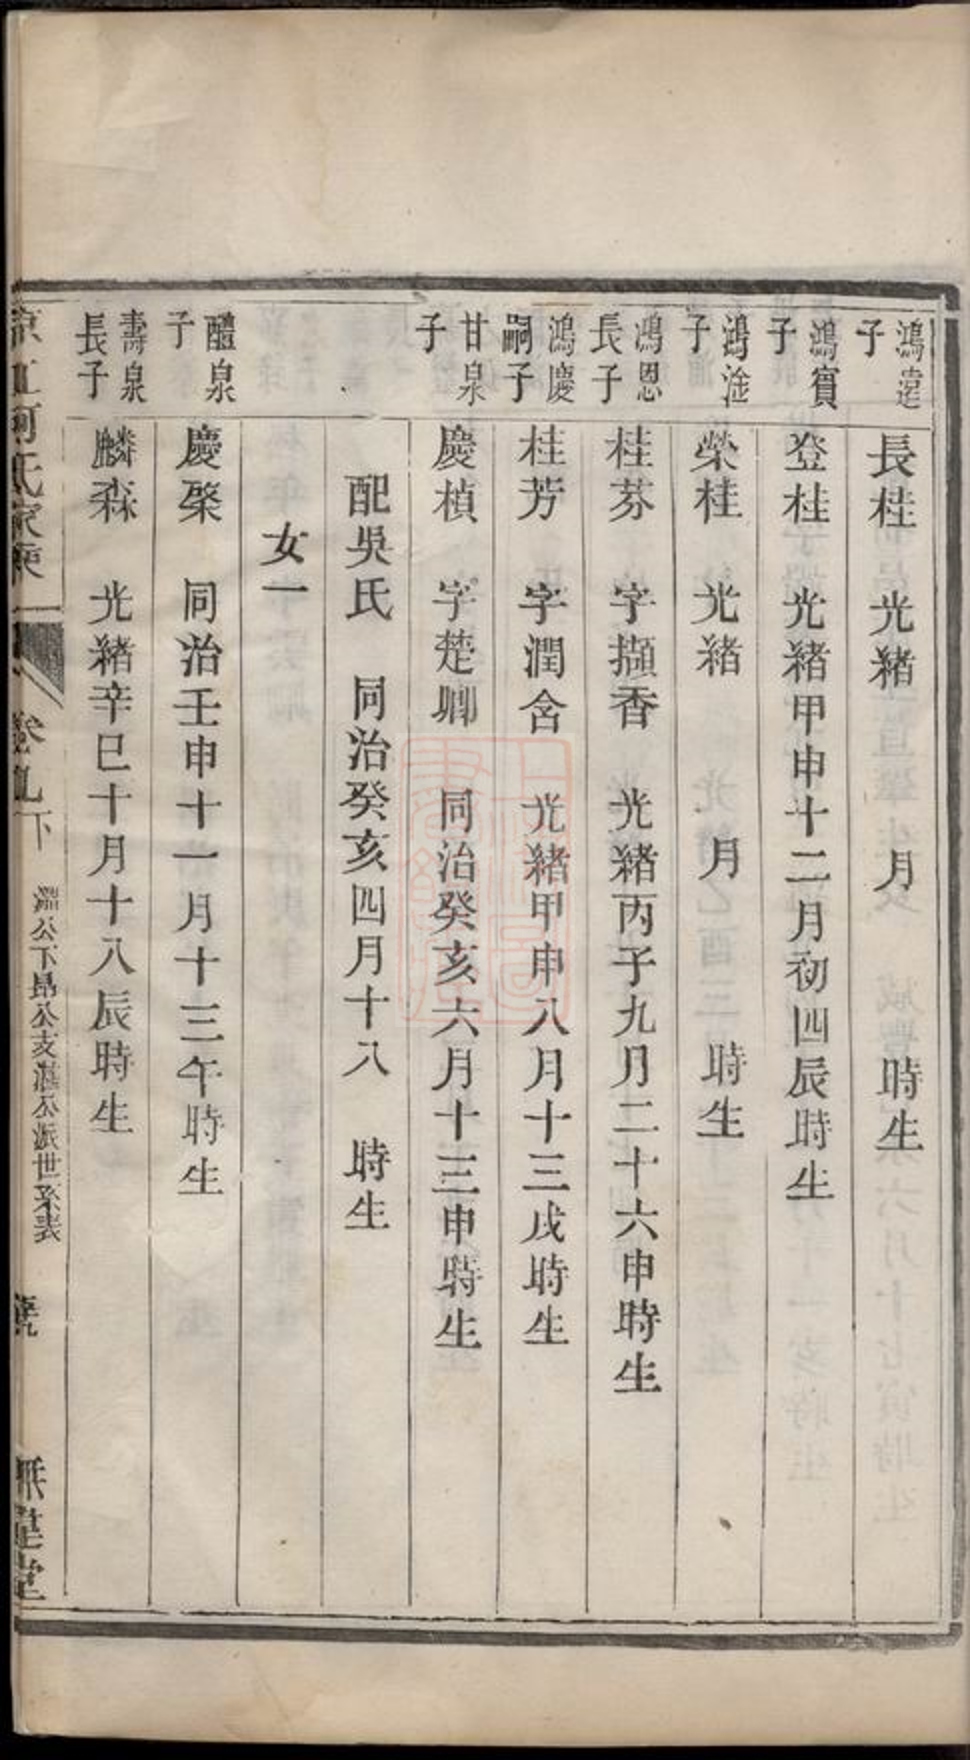 鴻達子
長桂 光緒 月 時生
鴻賓子
登桂 光緒甲申十二月初四辰時生
鴻淦子
榮桂 光緒 月 時生
鴻恩長子
桂芬 字擷香 光緒丙子九月二十六申時生
鴻慶嗣子
桂芳 字潤含 光緒甲申八月十三戌時生
甘泉子
慶楨 字楚卿 同治癸亥六月十三申時生
配吳氏 同治癸亥四月十八 時生
女一
醴泉子
慶棨 同治壬申十一月十三午時生
壽泉長子
麟森 光緒辛巳十月十八辰時生
氏家乘 卷九下 公下昻公支湛公派世系表 堂